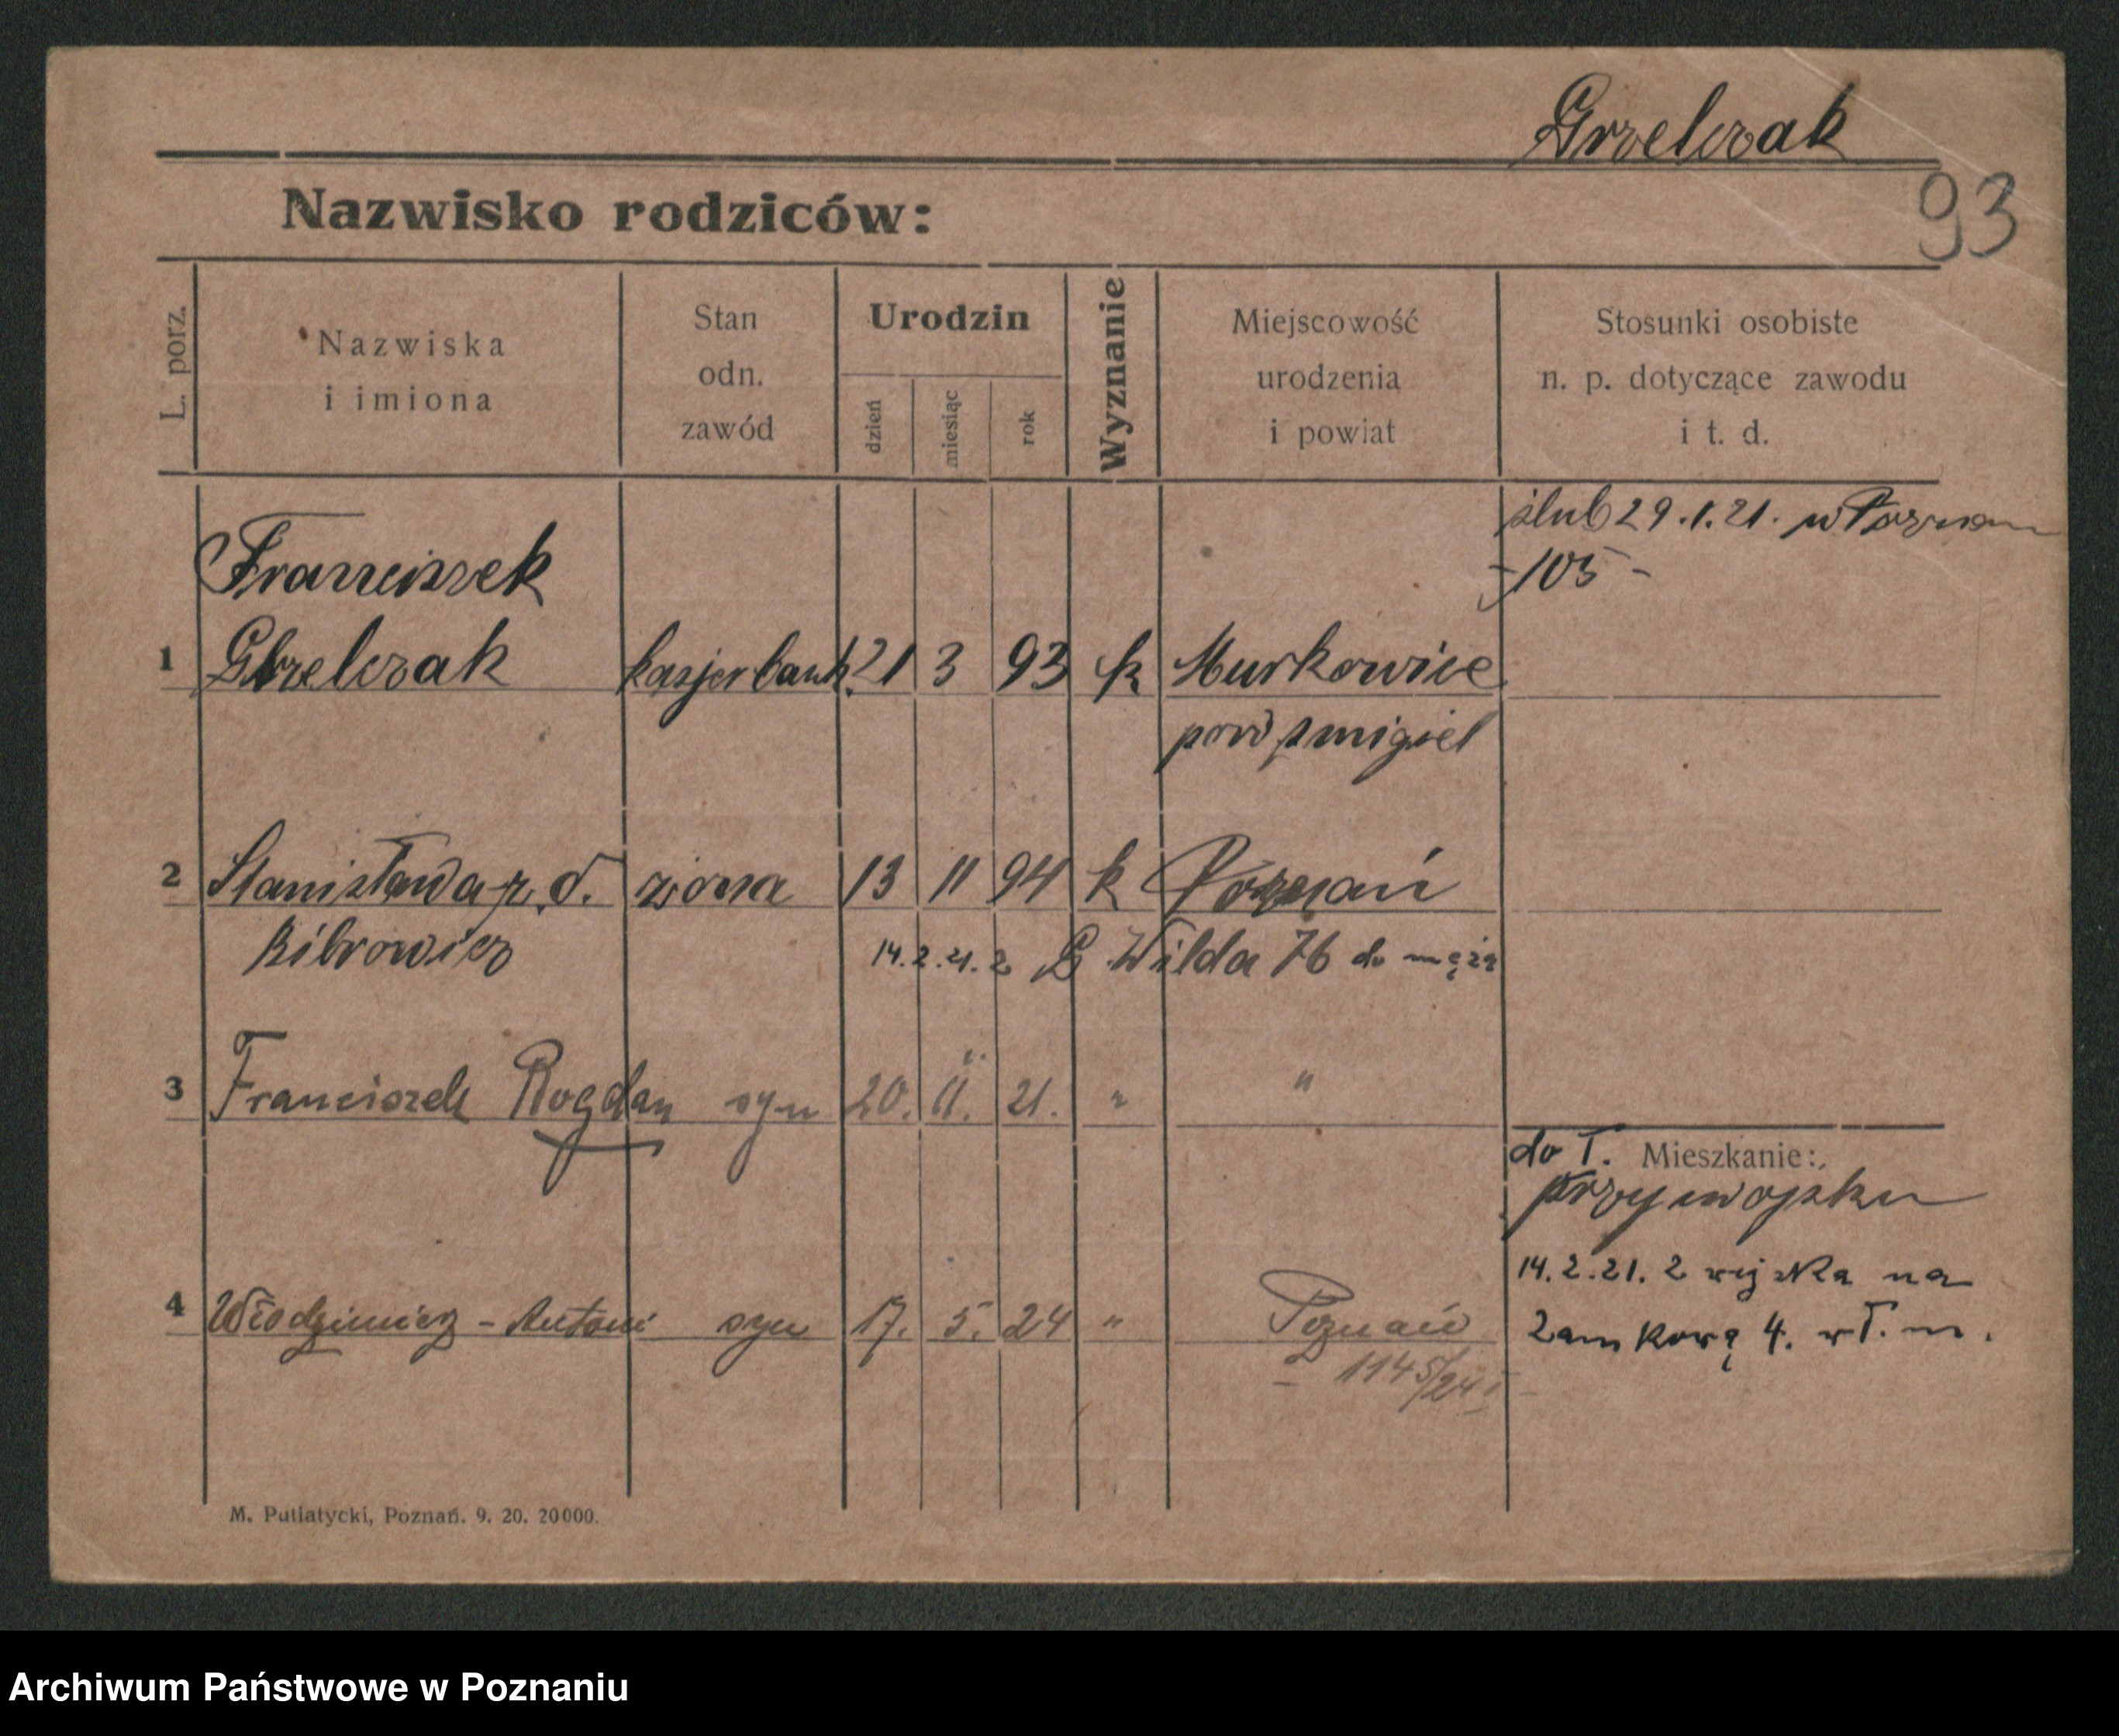 Grzelczak
93
Nazwisko rodziców:
L. porz.
Nazwiska
i imiona
Stan
odn.
zawód
Urodzin
dzień
miesiąc
rok
Wyznanie
Miejscowość
urodzenia
i powiat
Stosunki osobiste
n. p. dotyczące zawodu
i t. d.
ślub 29.1.21. w Poznan
-105-
Franciszek
1 Grzelczak kasjer bank. 21 3 93 k Murkowice
pow Śmigiel
2 Stanisława r. d. żona 13 11 94 k Poznań
Bibrowicz 14.2.21. z G Wilda 76 do męża
3 Franciszek Bogdan syn 20. 11. 21. " "
do T. Mieszkanie:
przy wojsku
14.2.21. z wojska na
Zamkową 4. wł. m.
4 Włodzimierz - Antoni syn 17. 5. 24 " Poznań
- 1145/24
M. Putiatycki, Poznań. 9. 20. 20000.
Archiwum Państwowe w Poznaniu